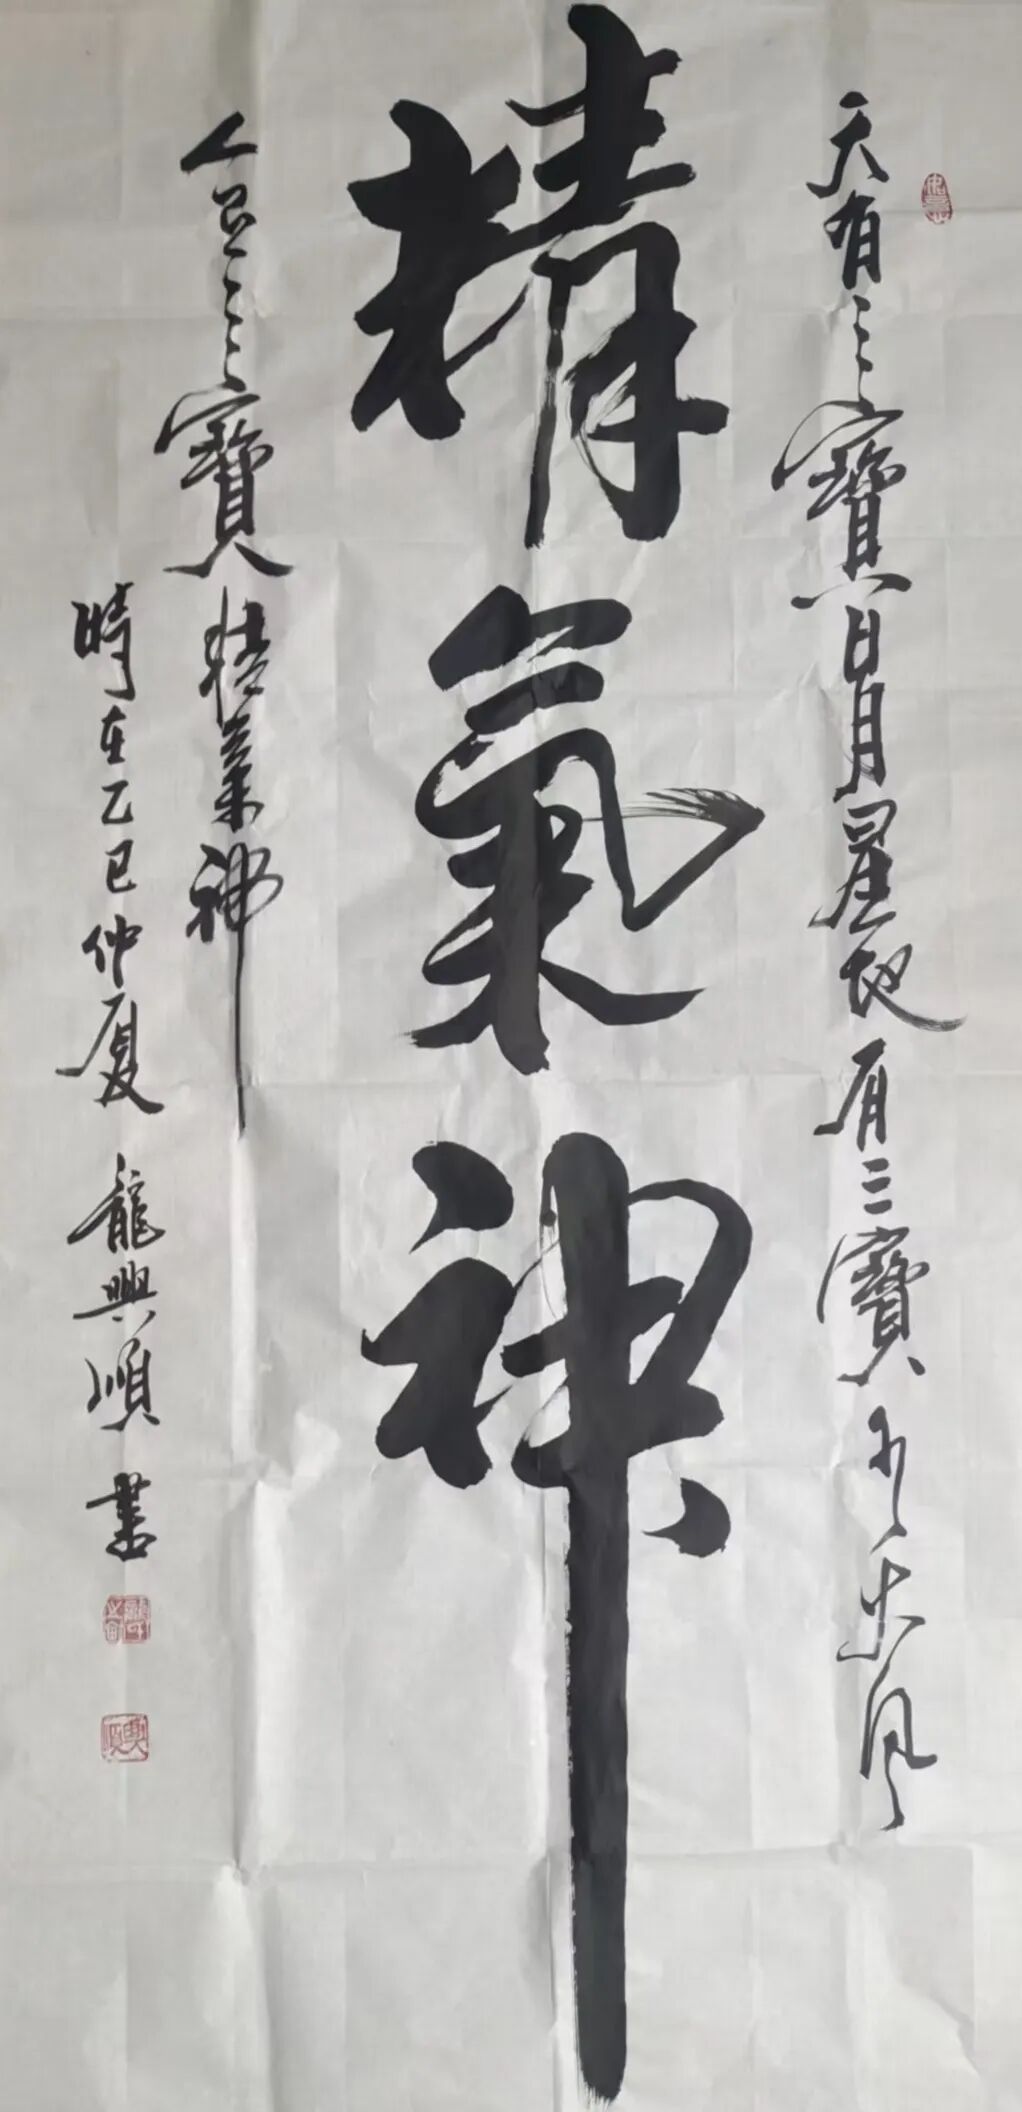 天有三寶日月星地有三寶水火风
精氣神
人有三寶精氣神
時在乙巳仲夏龍興順書